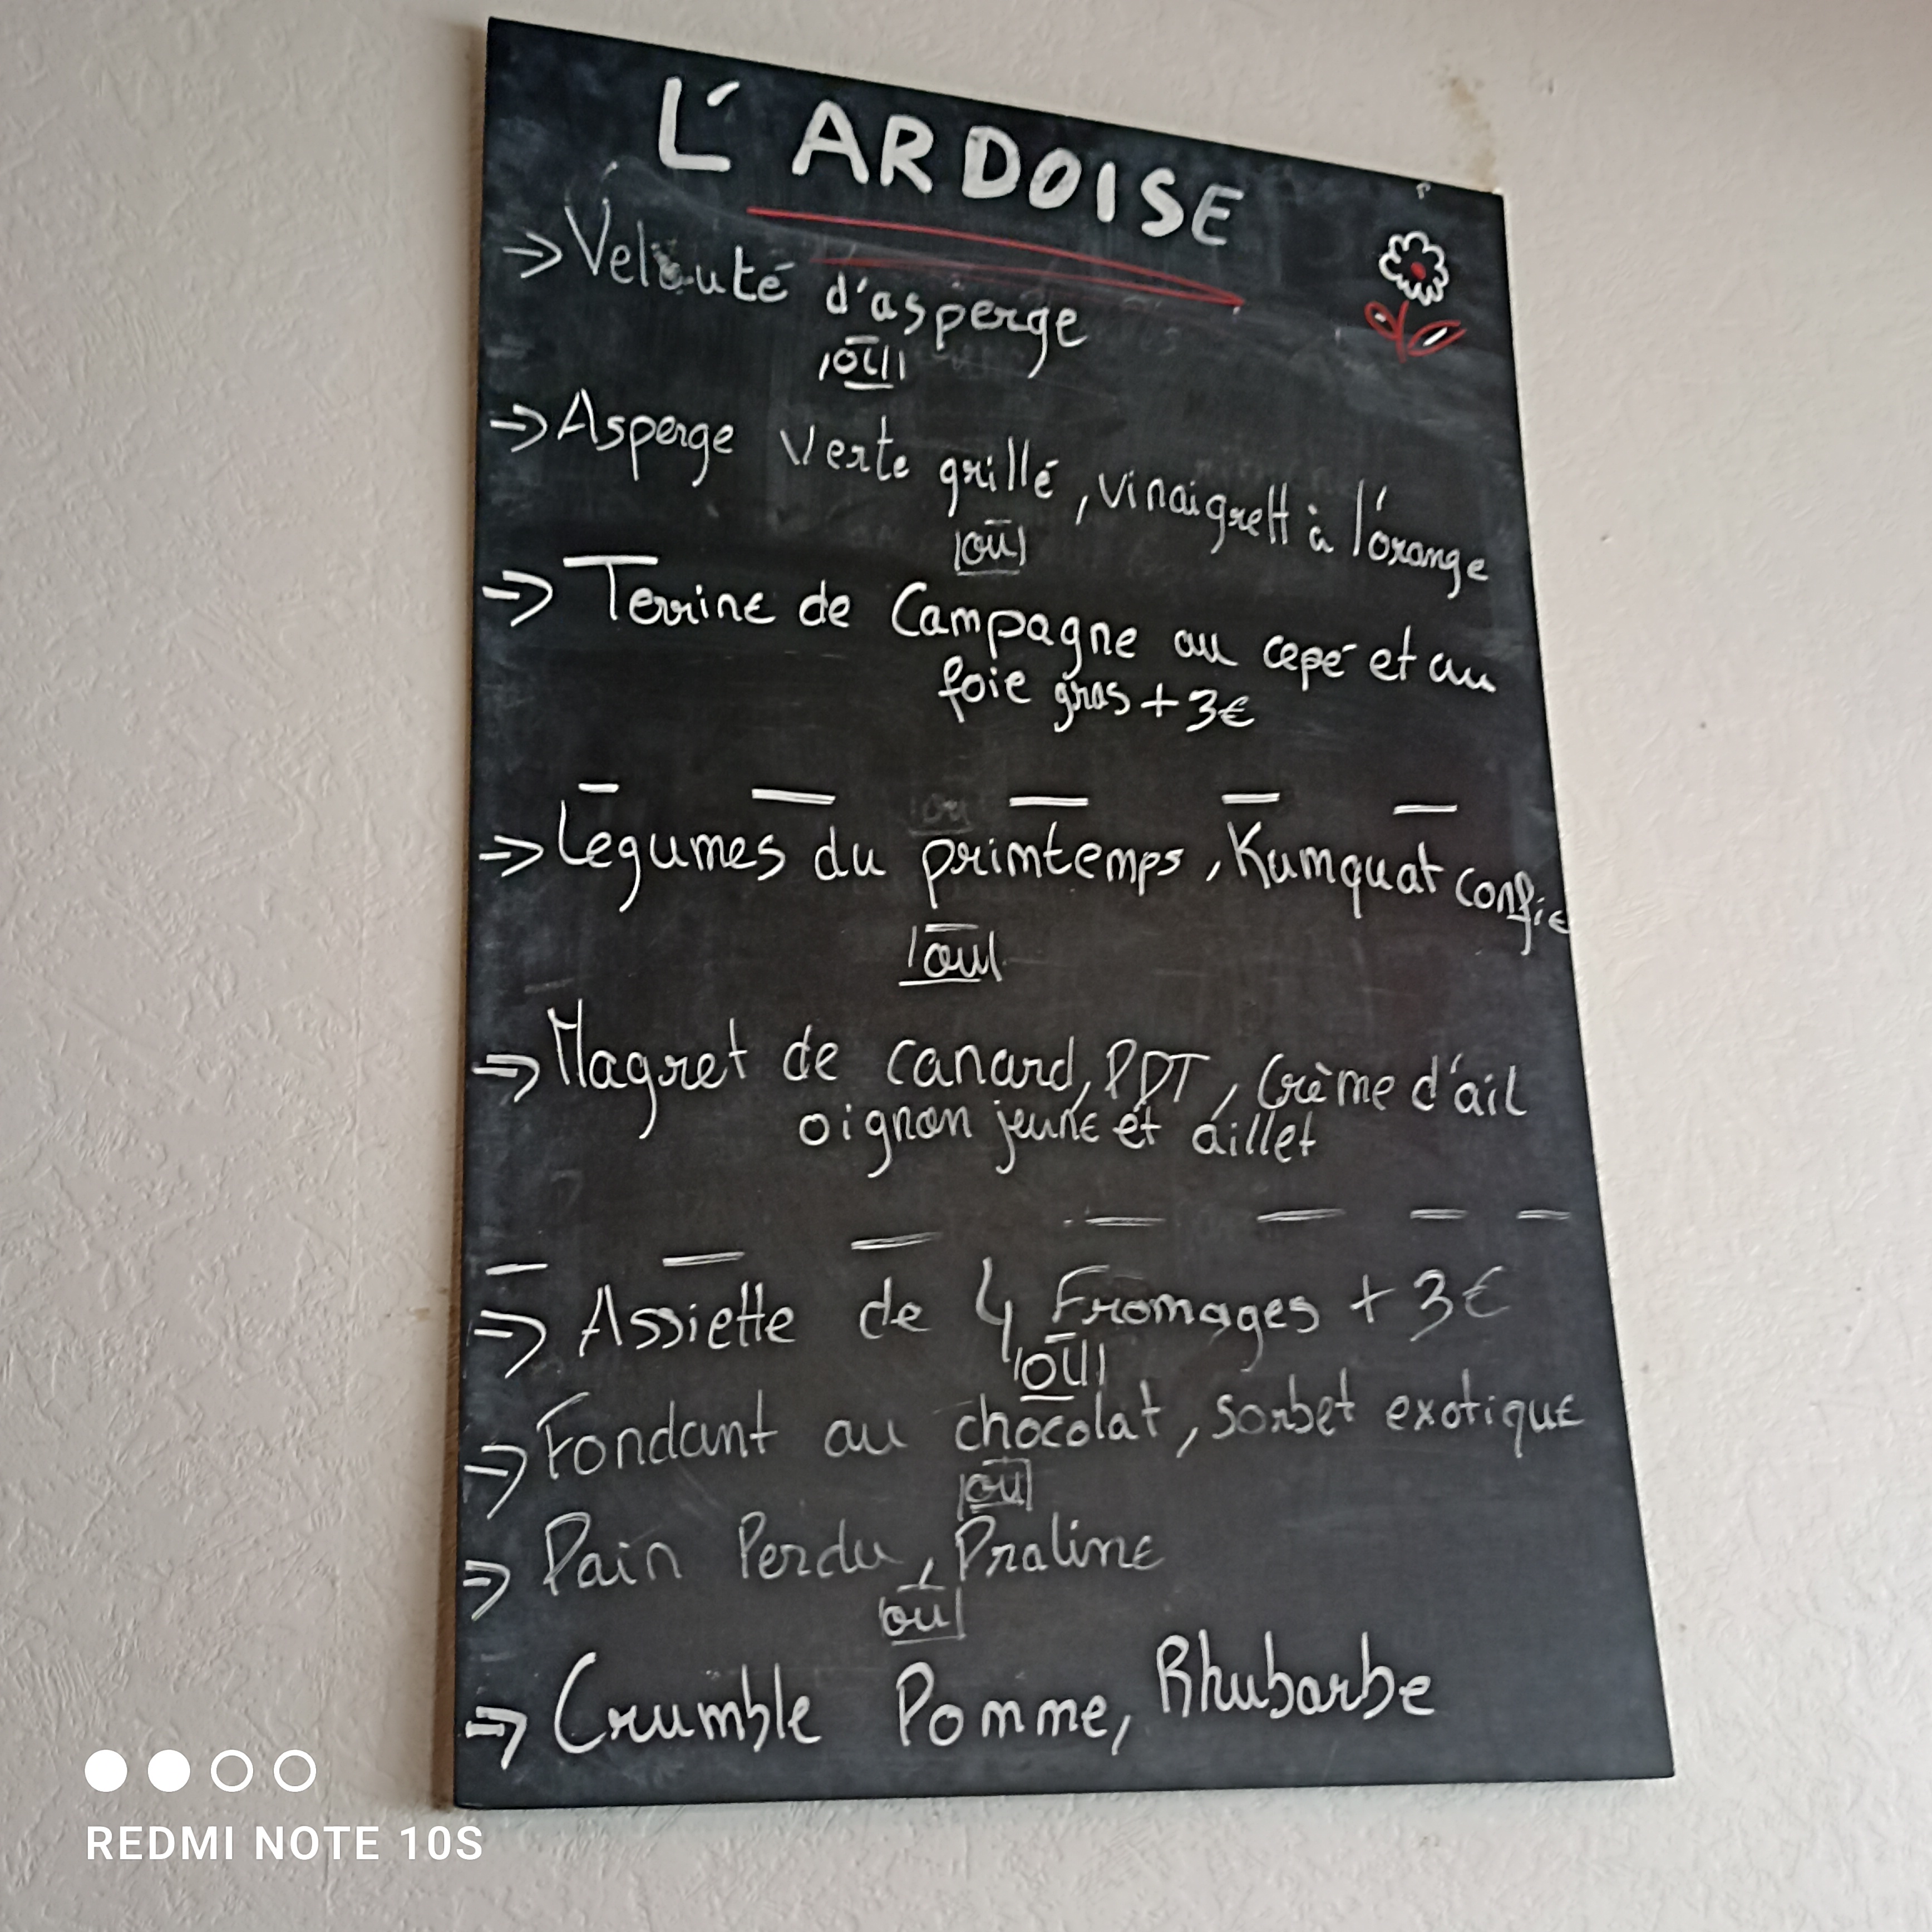 L'ARDOISE
→ Velouté d'asperge
|ou|
→ Asperge Verte grillé, vinaigrett à l'orange
|ou|
→ Terrine de Campagne au cepé et au
foie gras + 3€
→ Légumes du printemps, Kumquat confie
|ou|
→ Magret de canard, PDT, Crème d'ail
oignon jeune et aillet
→ Assiette de 4 Fromages + 3€
|ou|
→ Fondant au chocolat, sorbet exotique
|ou|
→ Pain Perdu, Praline
|ou|
→ Crumble Pomme, Rhubarbe
REDMI NOTE 10S